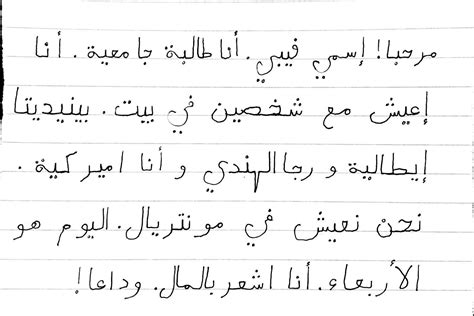 مرحبا! إسمي فيبي. أنا طالبة جامعية. أنا
إعيش مع شخصين في بيت. بينيديتا
إيطالية و رجا الهندي و أنا اميركية.
نحن نعيش في مونتريال. اليوم هو
الأربعاء. أنا اشعر بالمال. وداعا!